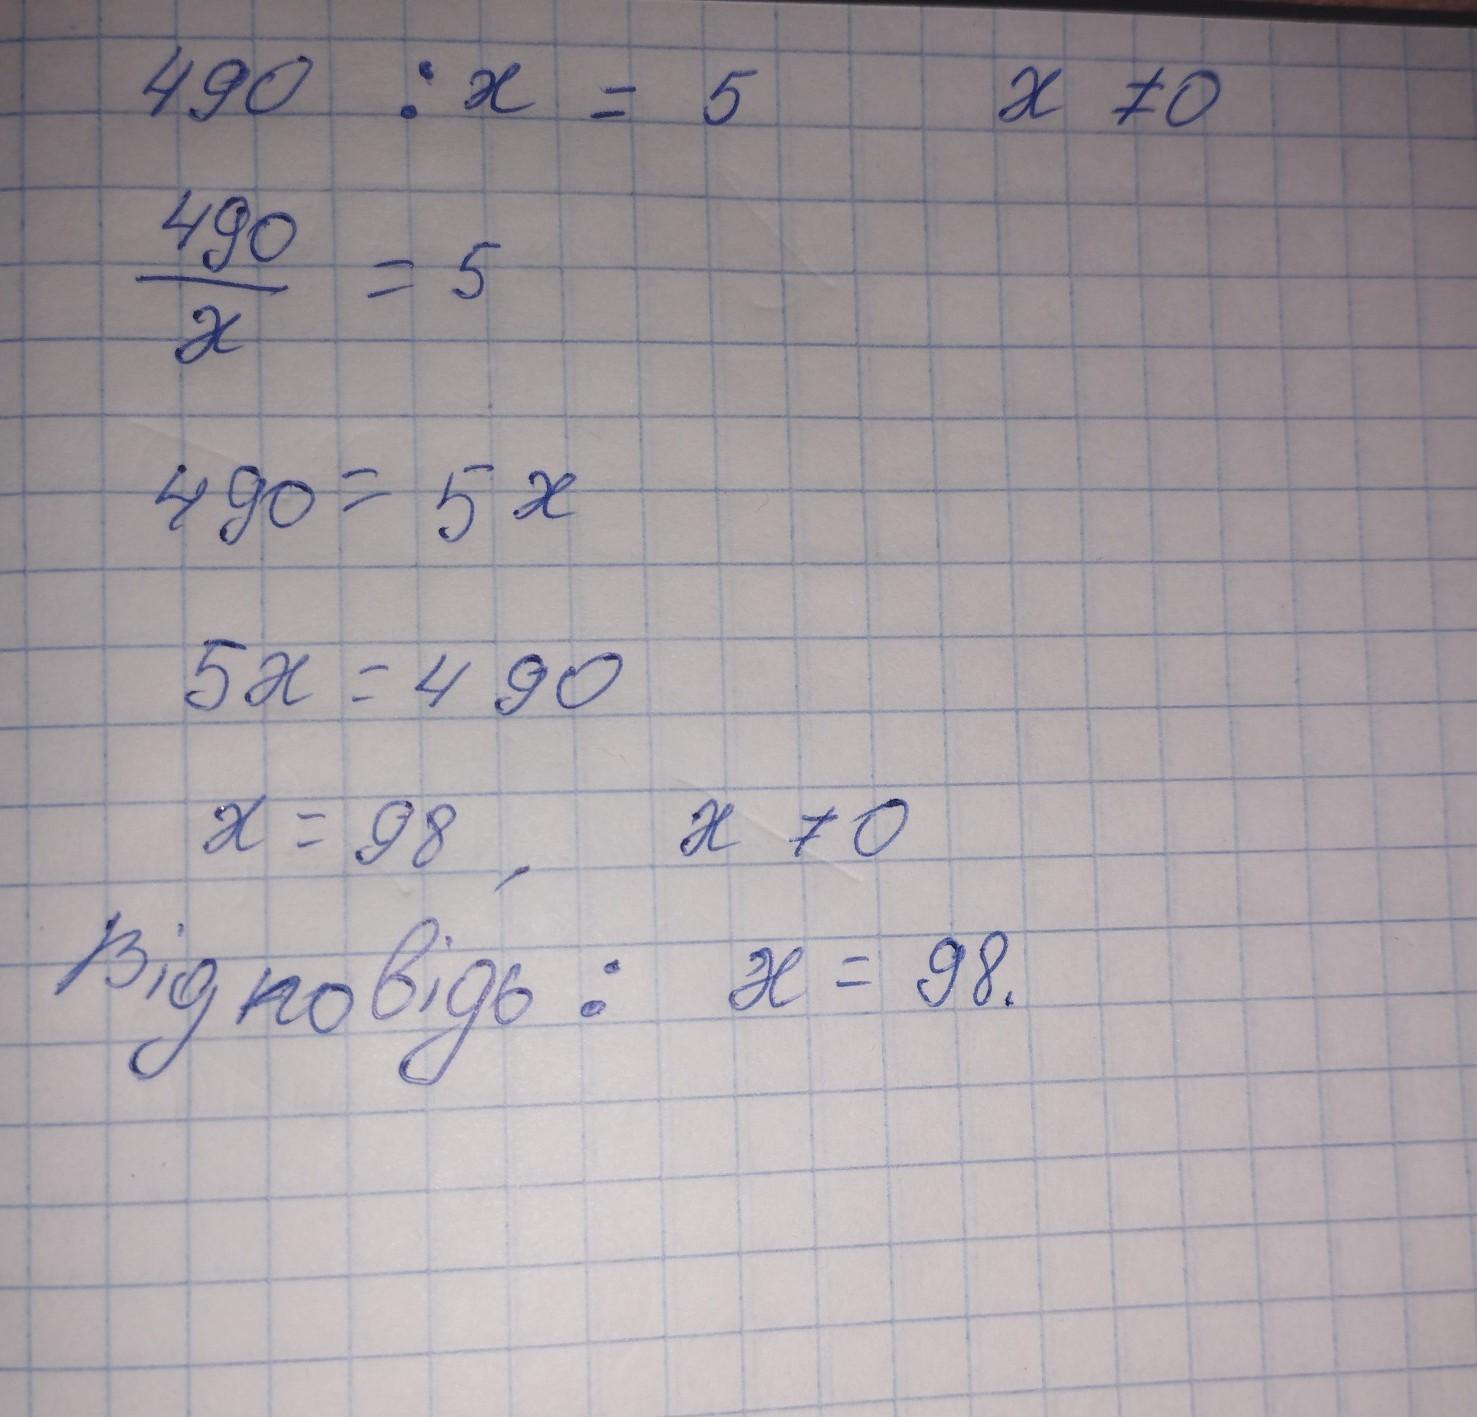 490 : x = 5 x ≠ 0
490
x
= 5
490 = 5x
5x = 490
x = 98, x ≠ 0
Відповідь: x = 98.